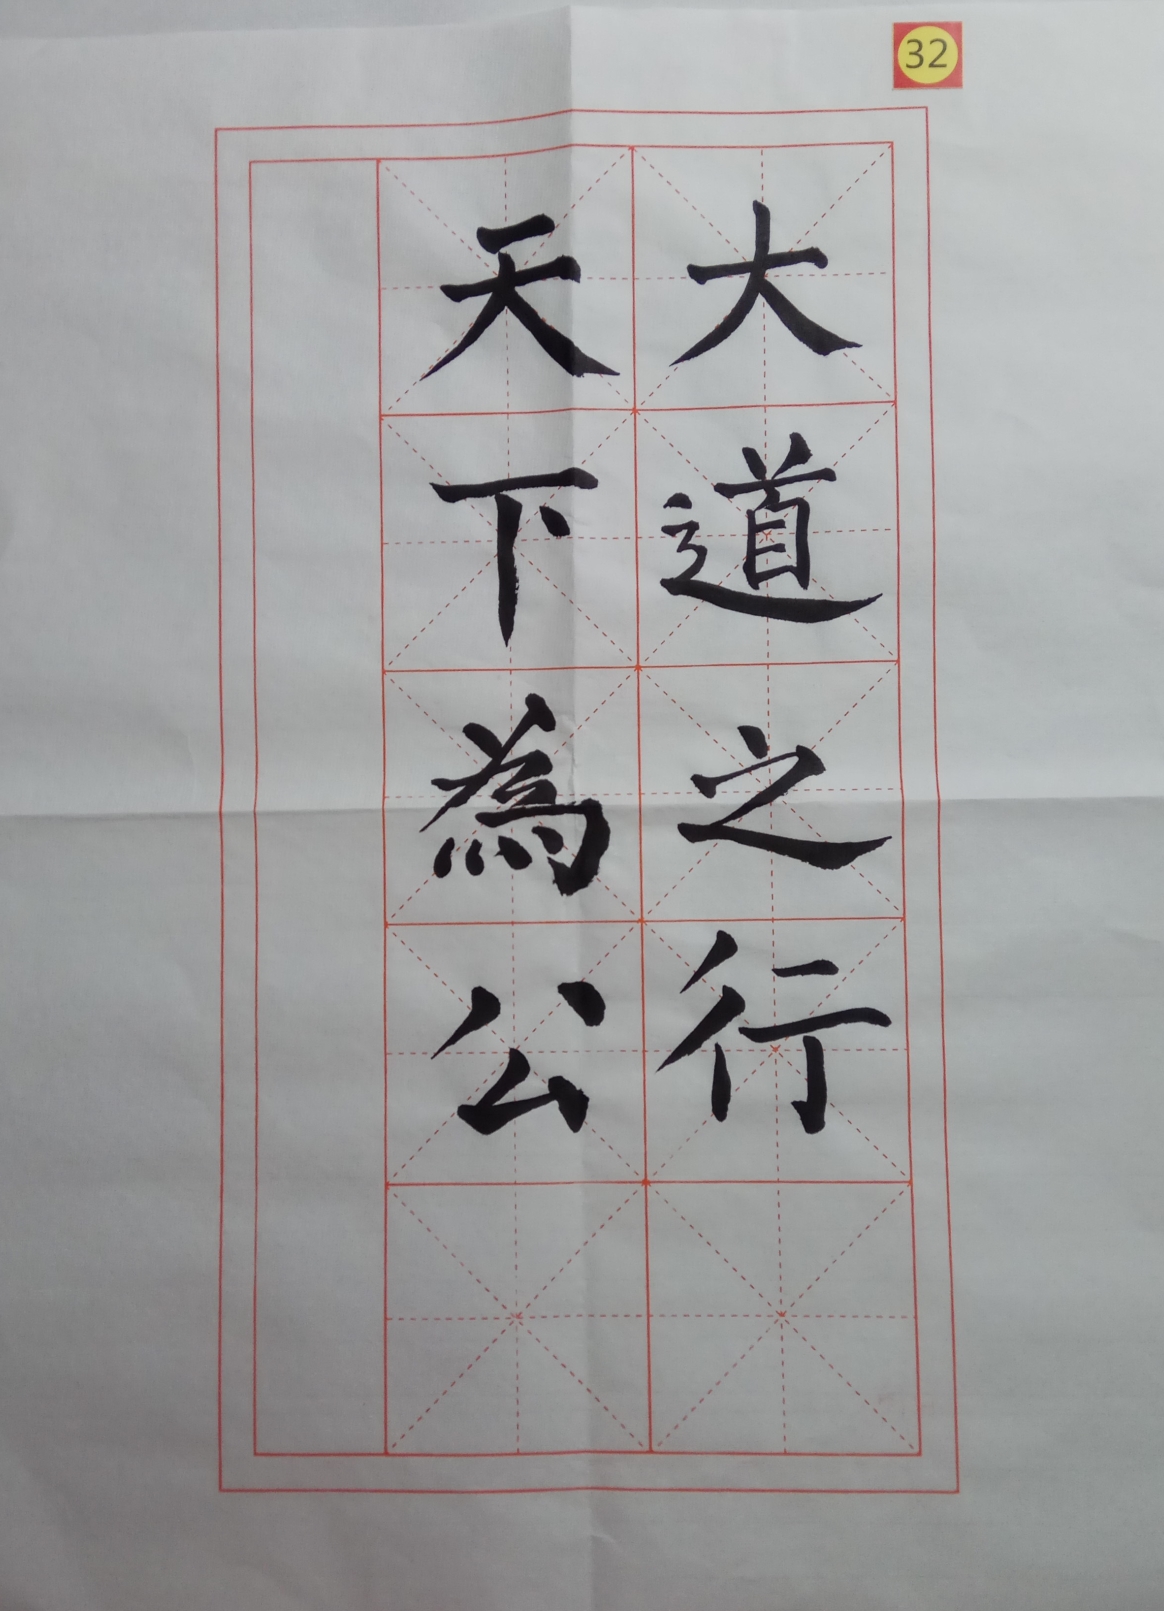 32
大道之行
天下為公